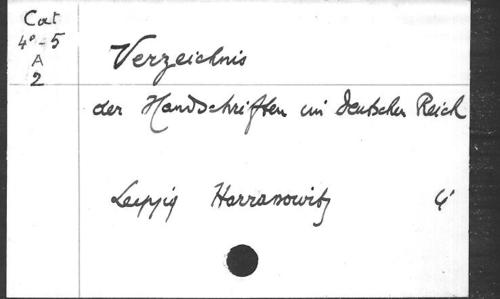 Cat
4°-5
A
2
Verzeichnis
der Handschriften im Deutschen Reich
Leipzig Harrassowitz